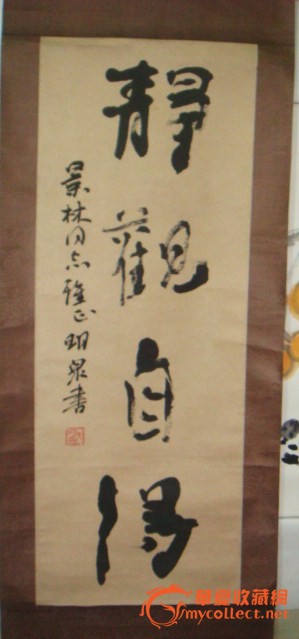 靜觀自得
景林同志雅正 明泉書
華夏收藏網
mycollect.net